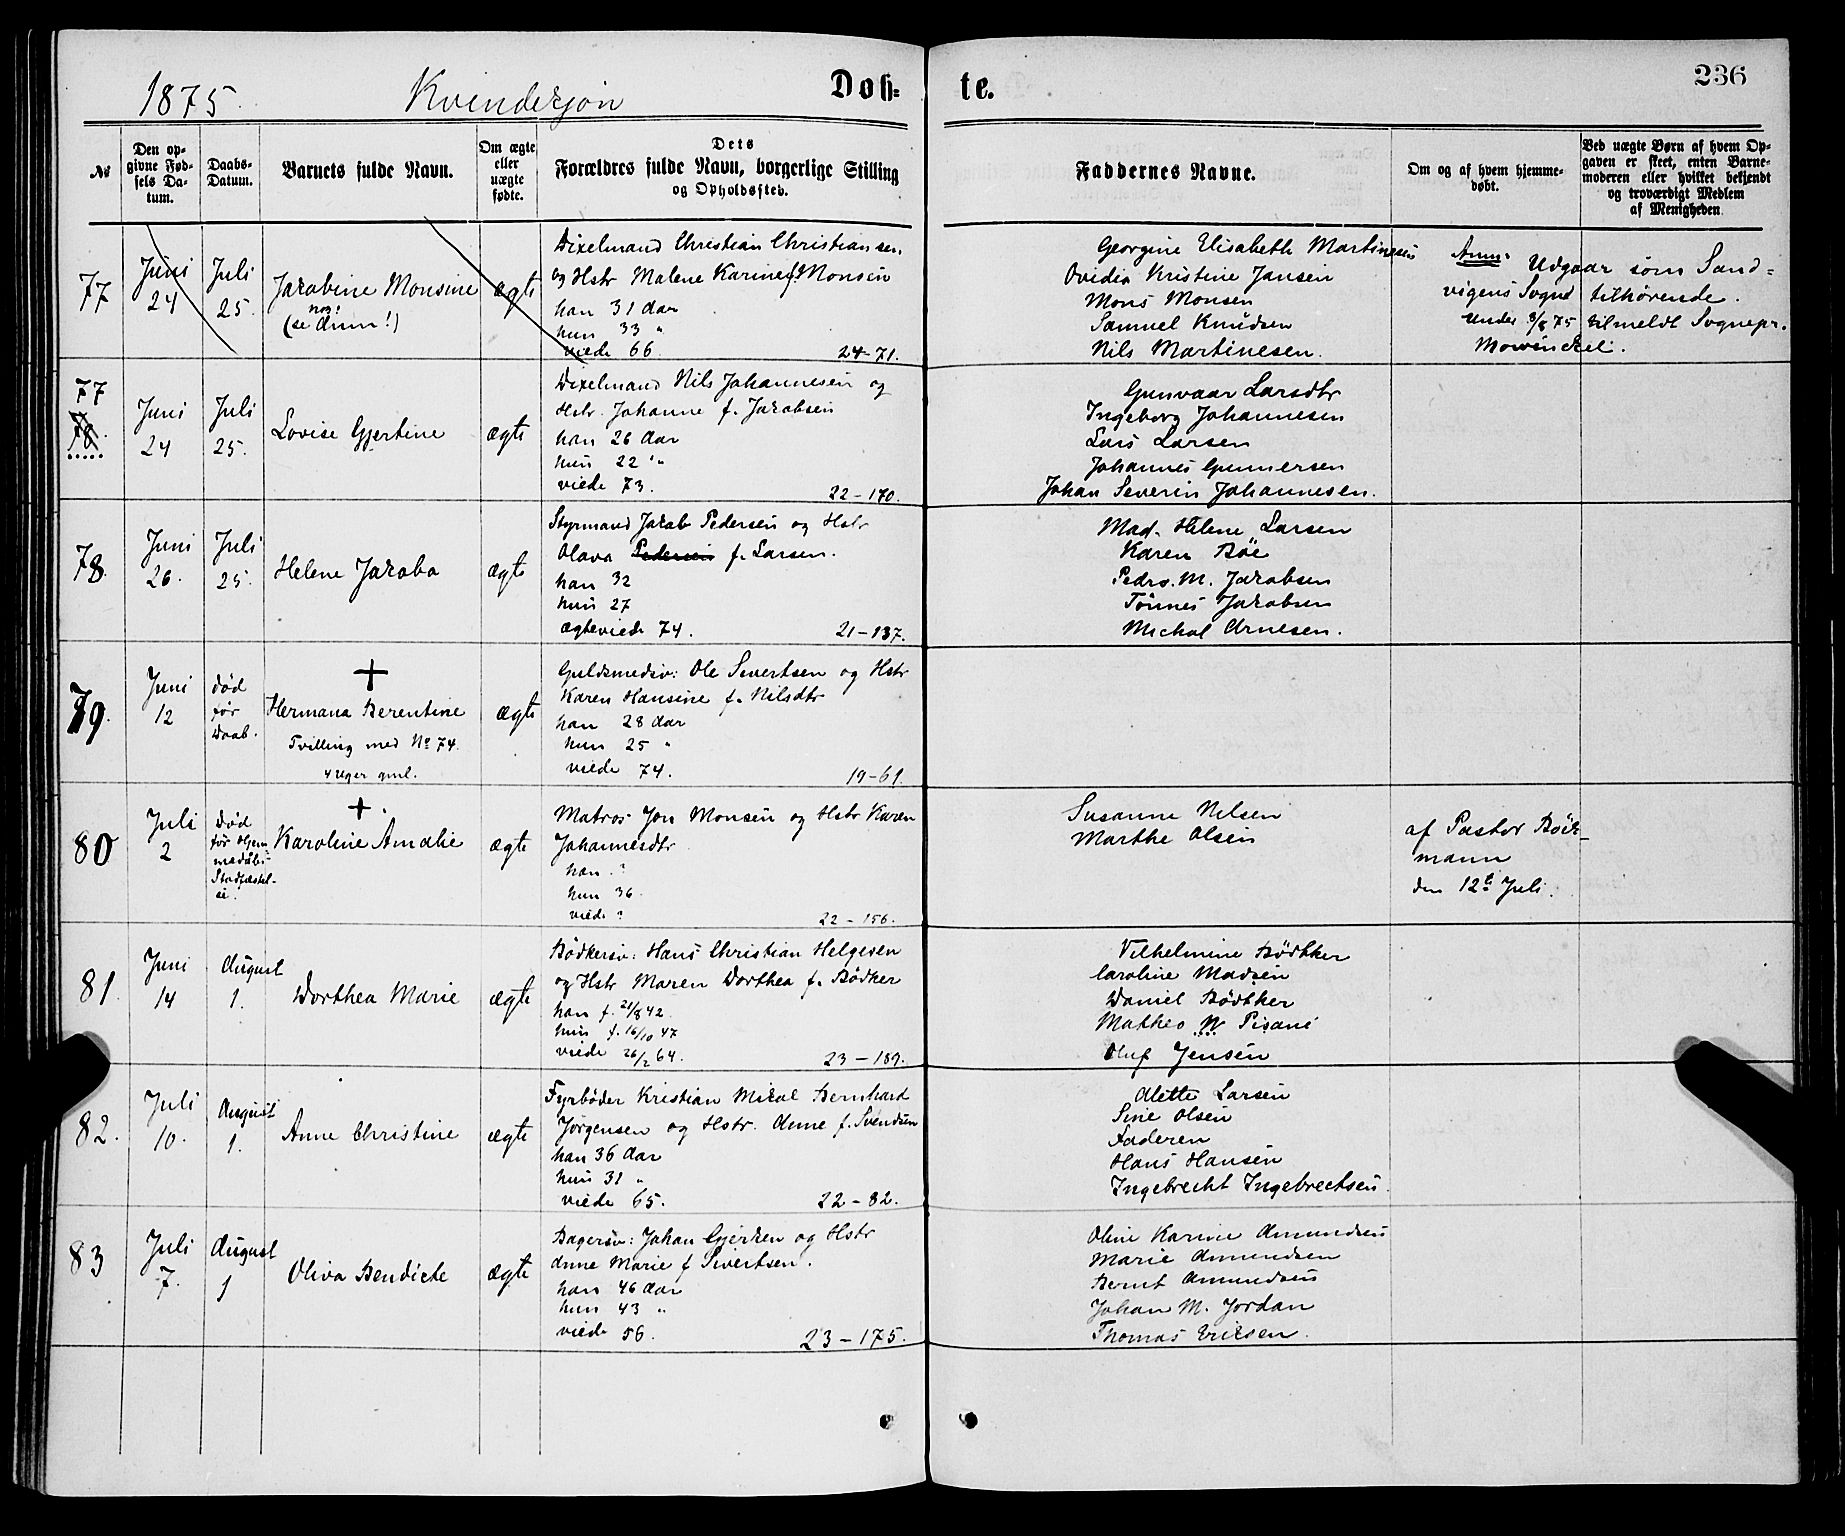 1875. Kvindekjøn Døb= te. 236
No
Den op-
givne Fød-
sels Da-
tum.
Daabs-
Datum.
Barnets fulde Navn.
Om ægte
eller
uægte
fødte.
Dets
Forældres fulde Navn, borgerlige Stilling
og Opholdssted.
Faddernes Navne.
Om og af hvem hjemme-
døbt.
Ved uægte Børn af hvem Op-
gaven er skeet, enten Barne-
moderen eller hvilket bekjendt
og troværdigt Medlem
af Menigheden.
77
Juni
24
Juli
25.
Jacobine Monsine
(se Anm!)
ægte
Dixelmand Christian Christiansen.
og Hstr Malene Karine f. Monsen
han 31 Aar
hun 33 "
viede 66.
24-71.
Georgine Elisabeth Martinesen
Ovidia Kristine Jansen
Mons Monsen
Samuel Knudsen
Nils Martinesen.
Anm: Udgaar som Sand=
vigens Sogn tilhørende.
Under 3/8 75 tilmeldt Sognepr.
Mowinckel.
77
78.
Juni
24
Juli
25.
Lovise Gjertine
ægte
Dixelmand Nils Johannesen og
Hstr. Johanne f. Jacobsen
han 26 Aar
hun 22 "
viede 73.
22-170.
Gunvaar Larsdtr
Ingeborg Johannesen
Lars Larsen
Johannes Gunnersen
Johan Severin Johannesen.
78.
Juni
26.
Juli
25.
Helene Jacoba
ægte
Styrmand Jacob Pedersen og Hstr
Olava Pedersen f. Larsen.
han 32
hun 27
ægteviede 74.
21-137.
Mad. Helene Larsen
Karen Bøe
Pedro. M. Jacobsen
Tönnes Jacobsen
Michal Arnesen.
79.
Juni
12
død
før
Daab.
Hermana Berentine
Tvilling med No 74.
4 Uger gml.
ægte
Guldsmedsv: Ole Sivertsen og Hstr
Karen Hansine f. Nilsdtr
han 28 Aar
hun 25 "
viede 74.
19-61.
80
Juli
2
Død
før Hjem
medaabs-
Stadfæstel-
se.
Karoline Amalie
ægte
Matros Jon Monsen og Hstr Karen
Johannesdtr
han ?
hun 36.
viede ?
22-156.
Susanne Nilsen
Marthe Olsen
af Pastor Böck-
mann
den 12te Juli.
81.
Juni
14
August
1.
Dorthea Marie
ægte
Bødkersv: Hans Christian Helgesen
og Hstr Maren Dorthea f. Bødker
han f. 21/8 42.
hun f. 16/10 47
viede 26/2 64.
23-189.
Vilhelmine Bødtker
Caroline Madsen
Daniel Bödtker
Matheo W Pisani
Oluf Jensen
82.
Juli
10.
August
1.
Anne Christine
ægte
Fyrbøder Kristian Mikal Bernhard
Jørgensen og Hstr. Anne f. Svendsen
han 36 Aar
hun 31 "
viede 65.
22-82.
Alette Larsen
Sine Olsen
Faderen
Hans Hansen
Ingebrecht Ingebrechtsen.
83
Juli
7.
August
1
Oliva Bendicte
ægte
Bagersv: Johan Gjerken og Hstr
Anne Marie f Sivertsen.
han 46 Aar
hun 43 "
viede 56.
23-175.
Oline Karine Amundsen
Marie Amundsen
Bernt Amundsen
Johan M. Jordan
Thomas Eriksen.